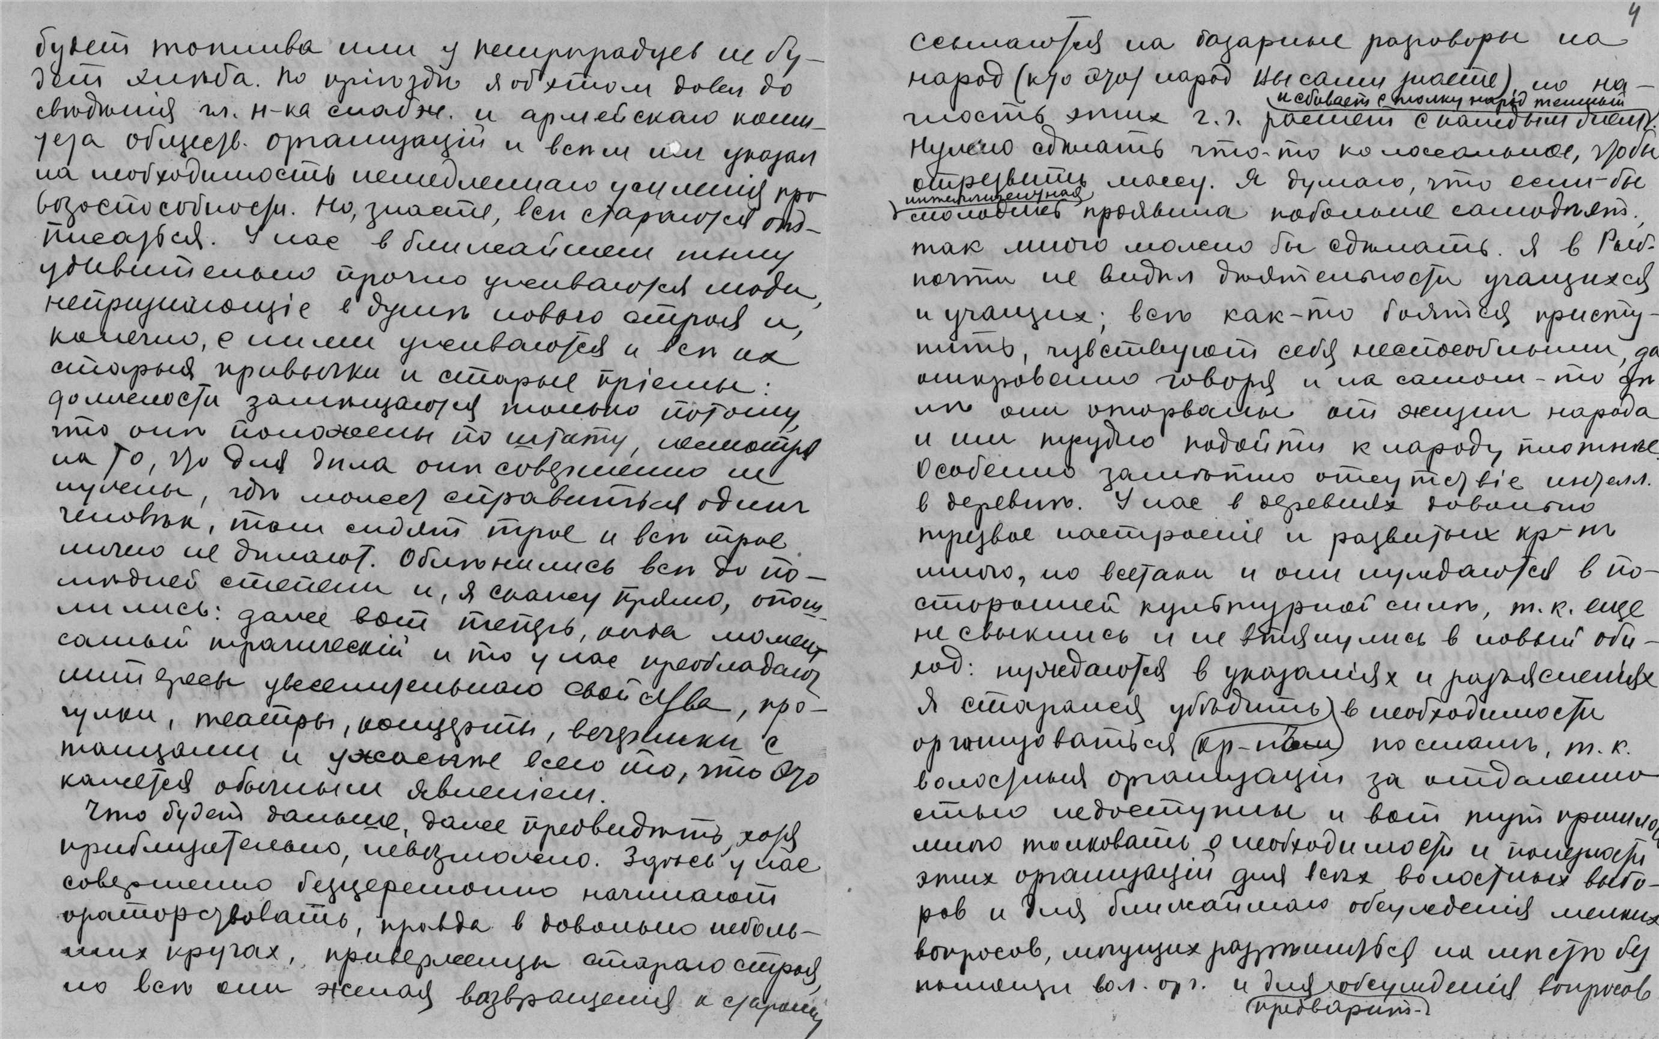 будет топлива или у петроградцев не бу-
дет хлѣба. По прiѣздѣ я об этом довел до
свѣдѣнiя гл. н-ка снабж. и армейскаго коми-
тета обществ. организацiй и всѣм им указал
на необходимость немедленнаго усиленiя про-
возоспособности. Но, знаете, всѣ стараются от-
писаться. У нас в ближайшем тылу
удивительно прочно уживаются люди,
непринимающiе в душѣ новаго строя и,
конечно, с ними уживаются и всѣ их
старыя привычки и старые прiемы:
должности замѣщаются только потому,
что онѣ положены по штату, несмотря
на то, что для дѣла онѣ совершенно не
нужны, гдѣ может справиться один
человѣк, там сидят трое и всѣ трое
ничего не дѣлают. Облѣнились всѣ до по-
слѣдней степени и, я скажу прямо, опош-
лились: даже вот теперь, когда момент
самый трагическiй и то у нас преобладают
интересы увеселительнаго свойства, про-
гулки, театры, концерты, вечеринки с
танцами и ужаснѣе всего то, что это
кажется обычным явленiем.
Что будет дальше, даже предвидѣть, хотя
приблизительно, невозможно. Здѣсь у нас
совершенно безцеремонно начинают
ораторствовать, правда в довольно неболь-
ших кругах, приверженцы стараго строя,
но всѣ они желая возвращенiя к старому
4
ссылаются на базарные разговоры на
народ (кто этот народ Вы сами знаете) но на-
и сбивает с толку народ темный
глость этих г.г. растет с каждым днем.
Нужно сдѣлать что-то колоссальное, чтобы
отрезвить массу. Я думаю, что если-бы
интеллигентная
молодежь проявила побольше самодѣят.,
так много можно бы сдѣлать. Я в Рыб.
почти не видѣл дѣятельности учащихся
и учащих; всѣ как-то боятся присту-
пить, чувствуют себя неспособными, да
откровенно говоря и на самом-то дѣ-
лѣ они оторваны от жизни народа
и им трудно подойти к народу плотнѣе.
Особенно замѣтно отсутствiе интелл.
в деревнѣ. У нас в деревнях довольно
трезвое настроенiе и развитых кр-н
много, но всетаки и они нуждаются в по-
сторонней культурной силѣ, т.к. еще
не свыклись и не втянулись в новый оби-
ход: нуждаются в указанiях и разъясненiях
Я старался убѣдить в необходимости
организоваться кр-нам по селам, т.к.
волостныя организацiи за отдаленно
стью недоступны и вот тут пришлось
много толковать о необходимости и полезности
этих организацiй для всѣх волостных выбо-
ров и для ближайшаго обсужденiя мелких
вопросов, могущих разрѣшиться на мѣстѣ без
помощи вол. орг. и для обсужденiя вопросов
предварит.